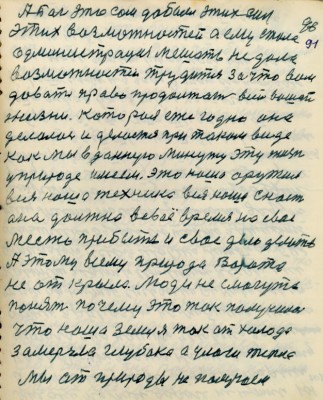 А так это сам добился этих сил
этих возможностей а ему стала
администрация мешать не дала
возможности трудится за что вам
давать право продолжать вашей
жизни. Которая ежегодно она
делалась и делается при таком виде
как мы в данную минуту эту жизнь
у природе имеем. Это наше оружие
вся наша техника вся наша снасть
она должна в своё время на своё
место прибыть и своё дело делать
А этому всему природа Ворота
не открыла. Люди не смогут
понять почему это так получилось
что наша земля так от холода
замерзла глубоко а у нас тепла
мы от природы не получаем
98
91